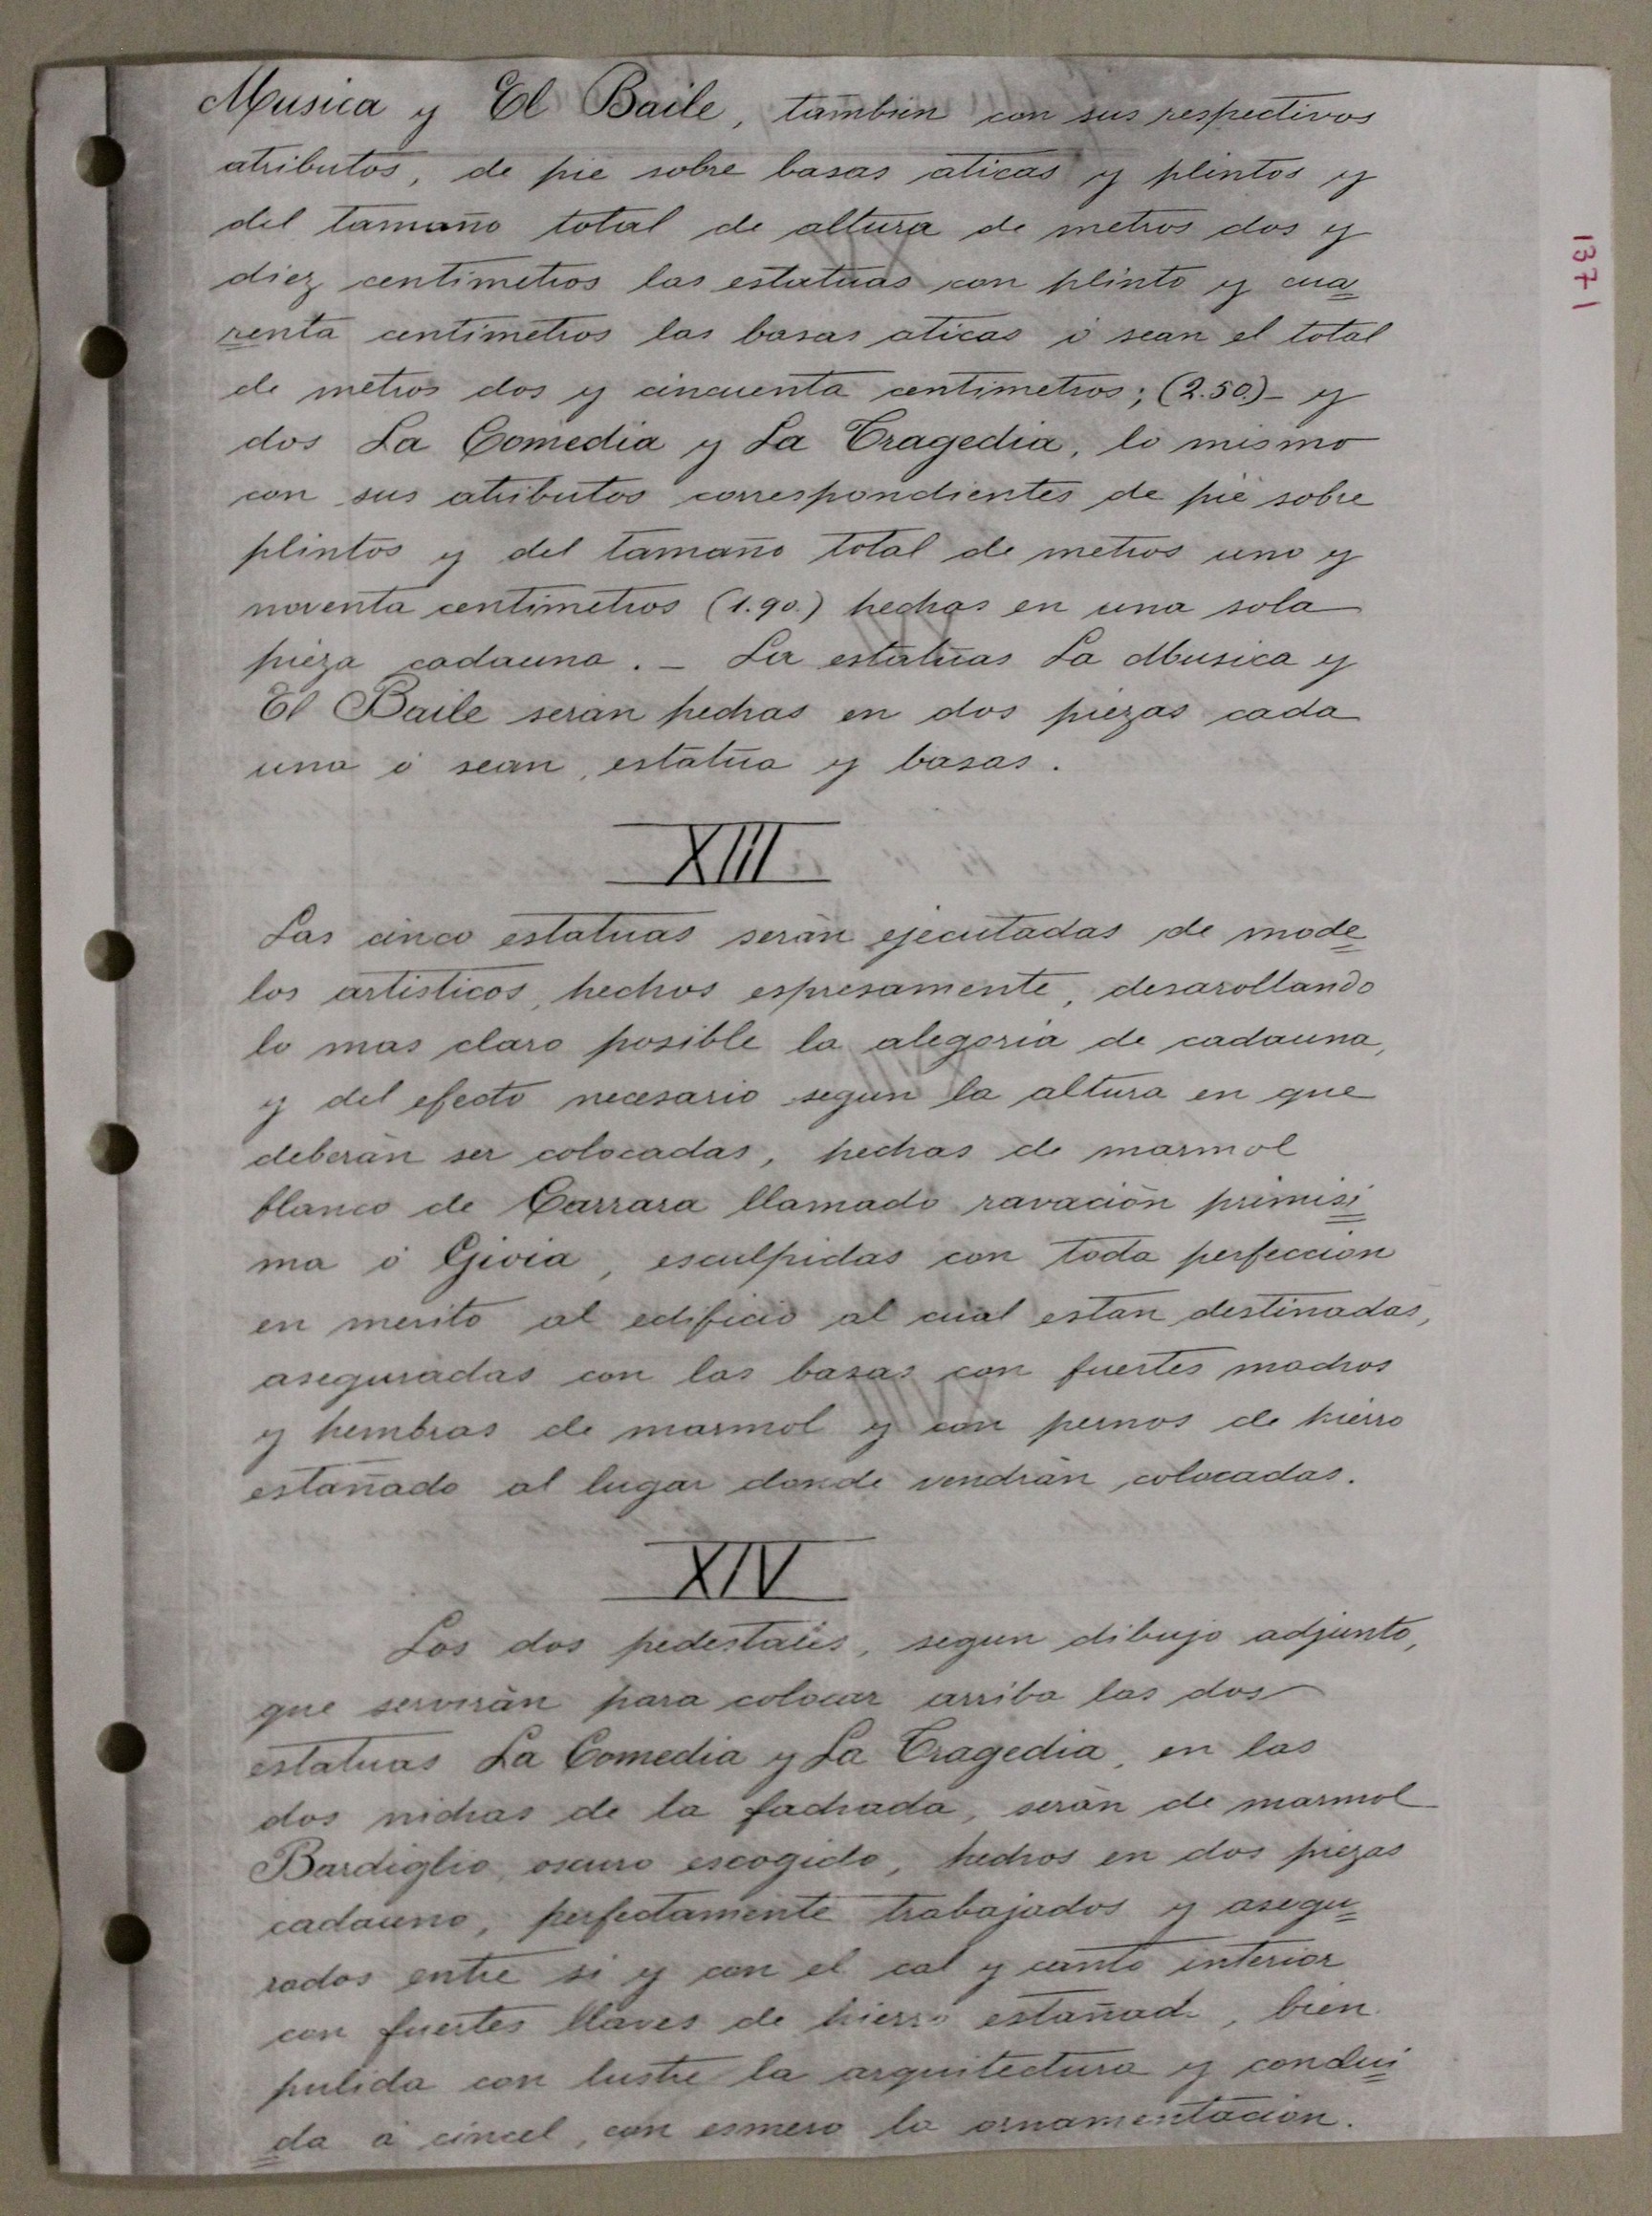 Musica y El Baile, tambien con sus respectivos
atributos, de pié sobre basas aticas y plintos y
del tamaño total de altura de metros dos y
diez centimetros las estatuas con plinto y cua=
renta centimetros las basas aticas ó sean el total
de metros dos y cincuenta centimetros; (2.50.)- y
dos La Comedia y La Tragedia, lo mismo
con sus atributos correspondientes de pié sobre
plintos y del tamaño total de metros uno y
noventa centimetros (1.90.) hechas en una sola
pieza cadauna. - La estatuas La Musica y
El Baile serán hechas en dos piezas cada
una ó sean, estatua y basas.
XIII
Las cinco estatuas serán ejecutadas de mode=
los artisticos, hechos espresamente, desarollando
lo mas claro posible la alegoria de cadauna,
y del efecto necesario segun la altura en que
deberán ser colocadas, hechas de marmol
blanco de Carrara llamado ravación primisi=
ma ó Gioia, esculpidas con toda perfeccion
en merito al edificio al cual estan destinadas,
aseguradas con las basas con fuertes machos
y hembras de marmol y con pernos de hierro
estañado al lugar donde vendrán colocadas.
XIV
Los dos pedestales, segun dibujo adjunto,
que servirán para colocar arriba las dos
estatuas La Comedia y La Tragedia, en las
dos nichas de la fachada, serán de marmol
Bardiglio oscuro escogido, hechos en dos piezas
cadauno, perfectamente trabajados y asegu=
rados entre si y con el cal y canto interior
con fuertes llaves de hierro estañado, bien
pulida con lustre la arquitectura y conclui=
da á cincel, con esmero la ornamentacion.
1371